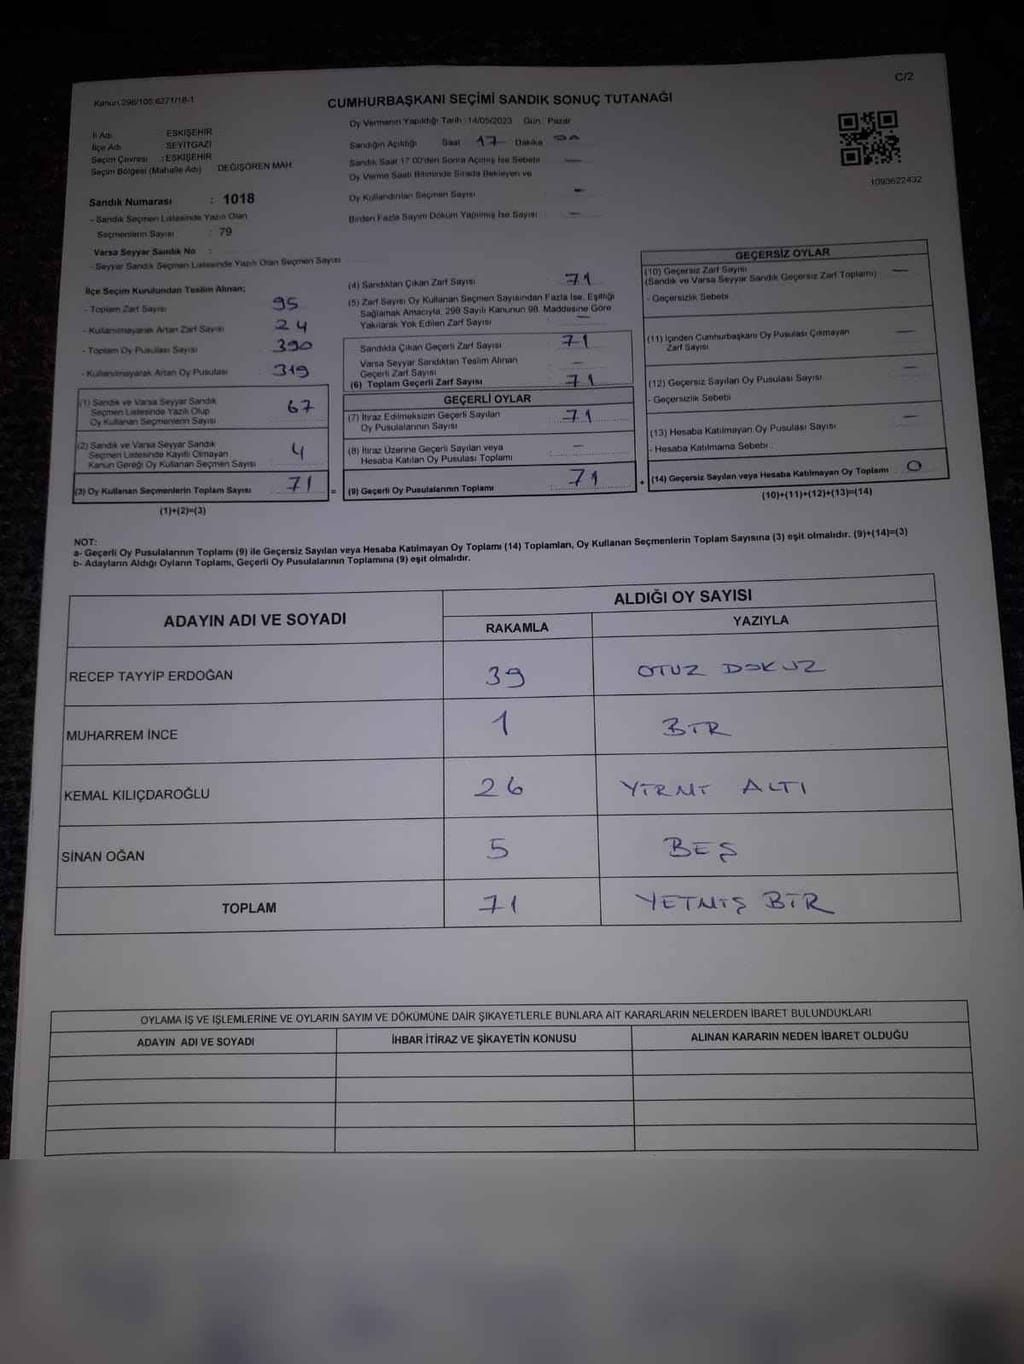 C/2
Kanun:296/105;6271/18-1
CUMHURBAŞKANI SEÇİMİ SANDIK SONUÇ TUTANAĞI
İl Adı : ESKİŞEHİR
İlçe Adı : SEYİTGAZİ
Seçim Çevresi : ESKİŞEHİR
Seçim Bölgesi (Mahalle Adı) : DEĞİŞÖREN MAH.
Sandık Numarası : 1018
- Sandık Seçmen Listesinde Yazılı Olan
Seçmenlerin Sayısı : 79
Varsa Seyyar Sandık No :
- Seyyar Sandık Seçmen Listesinde Yazılı Olan Seçmen Sayısı
Oy Vermenin Yapıldığı Tarih : 14/05/2023 Gün : Pazar
Sandığın Açıldığı Saat 17 Dakika
Sandık Saat 17:00'den Sonra Açılmış İse Sebebi —
Oy Verme Saati Bitiminde Sırada Bekleyen ve
Oy Kullandırılan Seçmen Sayısı —
Birden Fazla Sayım Döküm Yapılmış İse Sayısı —
1093622432
İlçe Seçim Kurulundan Teslim Alınan;
- Toplam Zarf Sayısı 95
- Kullanılmayarak Artan Zarf Sayısı 24
- Toplam Oy Pusulası Sayısı 390
- Kullanılmayarak Artan Oy Pusulası 319
(1) Sandık ve Varsa Seyyar Sandık
Seçmen Listesinde Yazılı Olup
Oy Kullanan Seçmenlerin Sayısı 67
(2) Sandık ve Varsa Seyyar Sandık
Seçmen Listesinde Kayıtlı Olmayan
Kanun Gereği Oy Kullanan Seçmen Sayısı 4
(3) Oy Kullanan Seçmenlerin Toplam Sayısı 71
(1)+(2)=(3)
(4) Sandıktan Çıkan Zarf Sayısı 71
(5) Zarf Sayısı Oy Kullanan Seçmen Sayısından Fazla İse, Eşitliği
Sağlamak Amacıyla, 298 Sayılı Kanunun 98. Maddesine Göre
Yakılarak Yok Edilen Zarf Sayısı —
Sandıkta Çıkan Geçerli Zarf Sayısı 71
Varsa Seyyar Sandıktan Teslim Alınan
Geçerli Zarf Sayısı —
(6) Toplam Geçerli Zarf Sayısı 71
GEÇERLİ OYLAR
(7) İtiraz Edilmeksizin Geçerli Sayılan
Oy Pusulalarının Sayısı 71
(8) İtiraz Üzerine Geçerli Sayılan veya
Hesaba Katılan Oy Pusulası Toplamı —
= (9) Geçerli Oy Pusulalarının Toplamı 71
GEÇERSİZ OYLAR
(10) Geçersiz Zarf Sayısı —
(Sandık ve Varsa Seyyar Sandık Geçersiz Zarf Toplamı)
- Geçersizlik Sebebi
(11) İçinden Cumhurbaşkanı Oy Pusulası Çıkmayan
Zarf Sayısı —
(12) Geçersiz Sayılan Oy Pusulası Sayısı —
- Geçersizlik Sebebi
(13) Hesaba Katılmayan Oy Pusulası Sayısı —
- Hesaba Katılmama Sebebi
+ (14) Geçersiz Sayılan veya Hesaba Katılmayan Oy Toplamı 0
(10)+(11)+(12)+(13)=(14)
NOT:
a- Geçerli Oy Pusulalarının Toplamı (9) ile Geçersiz Sayılan veya Hesaba Katılmayan Oy Toplamı (14) Toplamları, Oy Kullanan Seçmenlerin Toplam Sayısına (3) eşit olmalıdır. (9)+(14)=(3)
b- Adayların Aldığı Oyların Toplamı, Geçerli Oy Pusulalarının Toplamına (9) eşit olmalıdır.
ADAYIN ADI VE SOYADI
ALDIĞI OY SAYISI
RAKAMLA YAZIYLA
RECEP TAYYİP ERDOĞAN 39 OTUZ DOKUZ
MUHARREM İNCE 1 BİR
KEMAL KILIÇDAROĞLU 26 YİRMİ ALTI
SİNAN OĞAN 5 BEŞ
TOPLAM 71 YETMİŞ BİR
OYLAMA İŞ VE İŞLEMLERİNE VE OYLARIN SAYIM VE DÖKÜMÜNE DAİR ŞİKAYETLERLE BUNLARA AİT KARARLARIN NELERDEN İBARET BULUNDUKLARI
ADAYIN ADI VE SOYADI İHBAR İTİRAZ VE ŞİKAYETİN KONUSU ALINAN KARARIN NEDEN İBARET OLDUĞU